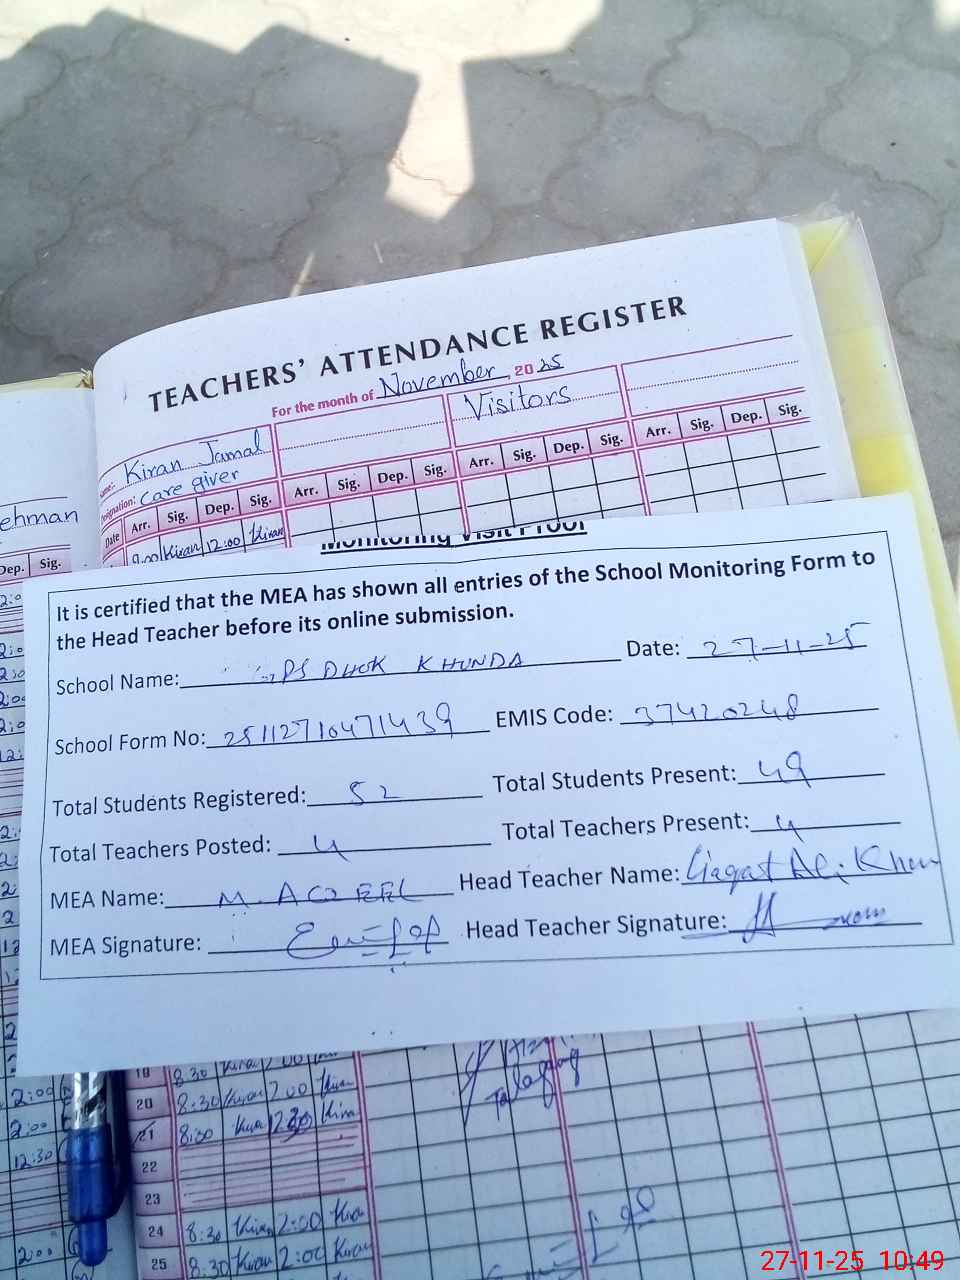 TEACHERS' ATTENDANCE REGISTER
For the month of November, 2025
Name: Kiran Jamal
Visitors
Designation: Care giver
Date Arr. Sig. Dep. Sig. Arr. Sig. Dep. Sig. Arr. Sig. Dep. Sig. Arr. Sig. Dep. Sig.
9:00 Kiran 12:00 Kiran
ehman
Dep. Sig.
Monitoring Visit Proof
It is certified that the MEA has shown all entries of the School Monitoring Form to
the Head Teacher before its online submission.
School Name: GPS DHOK KHUNDA Date: 27-11-25
School Form No: 25112710471439 EMIS Code: 37420248
Total Students Registered: 52 Total Students Present: 49
Total Teachers Posted: 4 Total Teachers Present: 4
MEA Name: M. AQEEL Head Teacher Name: Liaqat Ali Khan
MEA Signature: Head Teacher Signature:
19 8:30 Kiran 2:00
20 8:30 Kiran 2:00 Kiran
21 8:30 Kiran 12:30 Kiran
22
23
24 8:30 Kiran 2:00 Kiran
25 8:30 Kiran 2:00 Kiran
Talagang
2:00
2:00
12:30
2:00
27-11-25 10:49